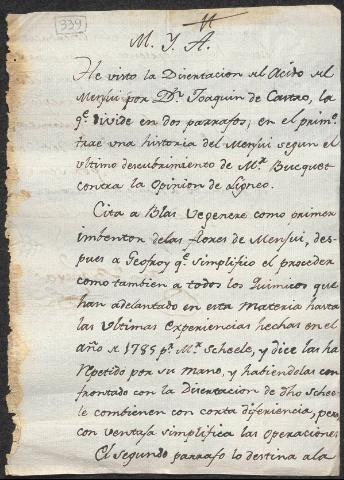 339
M. Y. A.
He visto la Disertacion del Acido del
Menjui por Dn. Joaquin de Castro, la
qe. divide en dos parrafos; en el primo.
trae una historia del Menjui segun el
ultimo descubrimiento de Mr. Bucquet
contra la Opinion de Ligneo.
Cita a Blas Vegenere como primer
imbentor de las flores de Menjui, des-
pues a Geofroy qe. simplificó el proceder
como tambien a todos los Quimicos que
han adelantado en esta Materia hasta
las Ultimas experiencias hechas en el
año de 1785 pr. Mr. Scheele, y dice las ha
repetido por su mano, y habiendolas con
frontado con la Disertacion de dho Schee-
le combienen con corta diferiencia, pero
con ventaja simplifica las Operaciones
El segundo parrafo lo destina a la